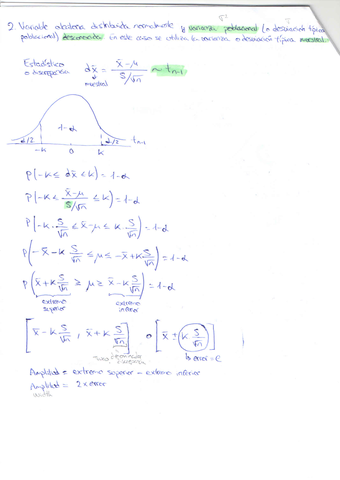 2. Variable aleatoria distribuida normalmente y varianza poblacional (o desviación típica
poblacional) desconocida en este caso se utiliza la varianza o desviación típica muestral.
Estadístico
o discrepancia
d x̄ = (x̄ - μ) / (S/√n) ~ t n-1
muestral
1-α
α/2 -k 0 k α/2 t n-1
P(-k ≤ d x̄ ≤ k) = 1-α
P(-k ≤ (x̄ - μ) / (S/√n) ≤ k) = 1-α
P(-k · S/√n ≤ x̄ - μ ≤ k S/√n) = 1-α
P(-x̄ - k S/√n ≤ μ ≤ -x̄ + k S/√n) = 1-α
P(x̄ + k S/√n ≥ μ ≥ x̄ - k S/√n) = 1-α
extremo superior extremo inferior
[x̄ - k S/√n , x̄ + k S/√n] o [x̄ ± k S/√n]
error = e
Amplitud = extremo superior - extremo inferior
Amplitud = 2 x error